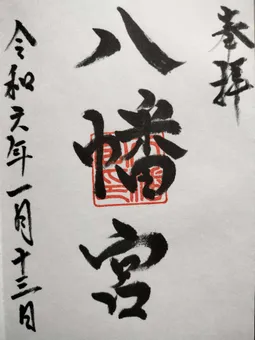 奉拝
八幡宮
令和六年一月十三日